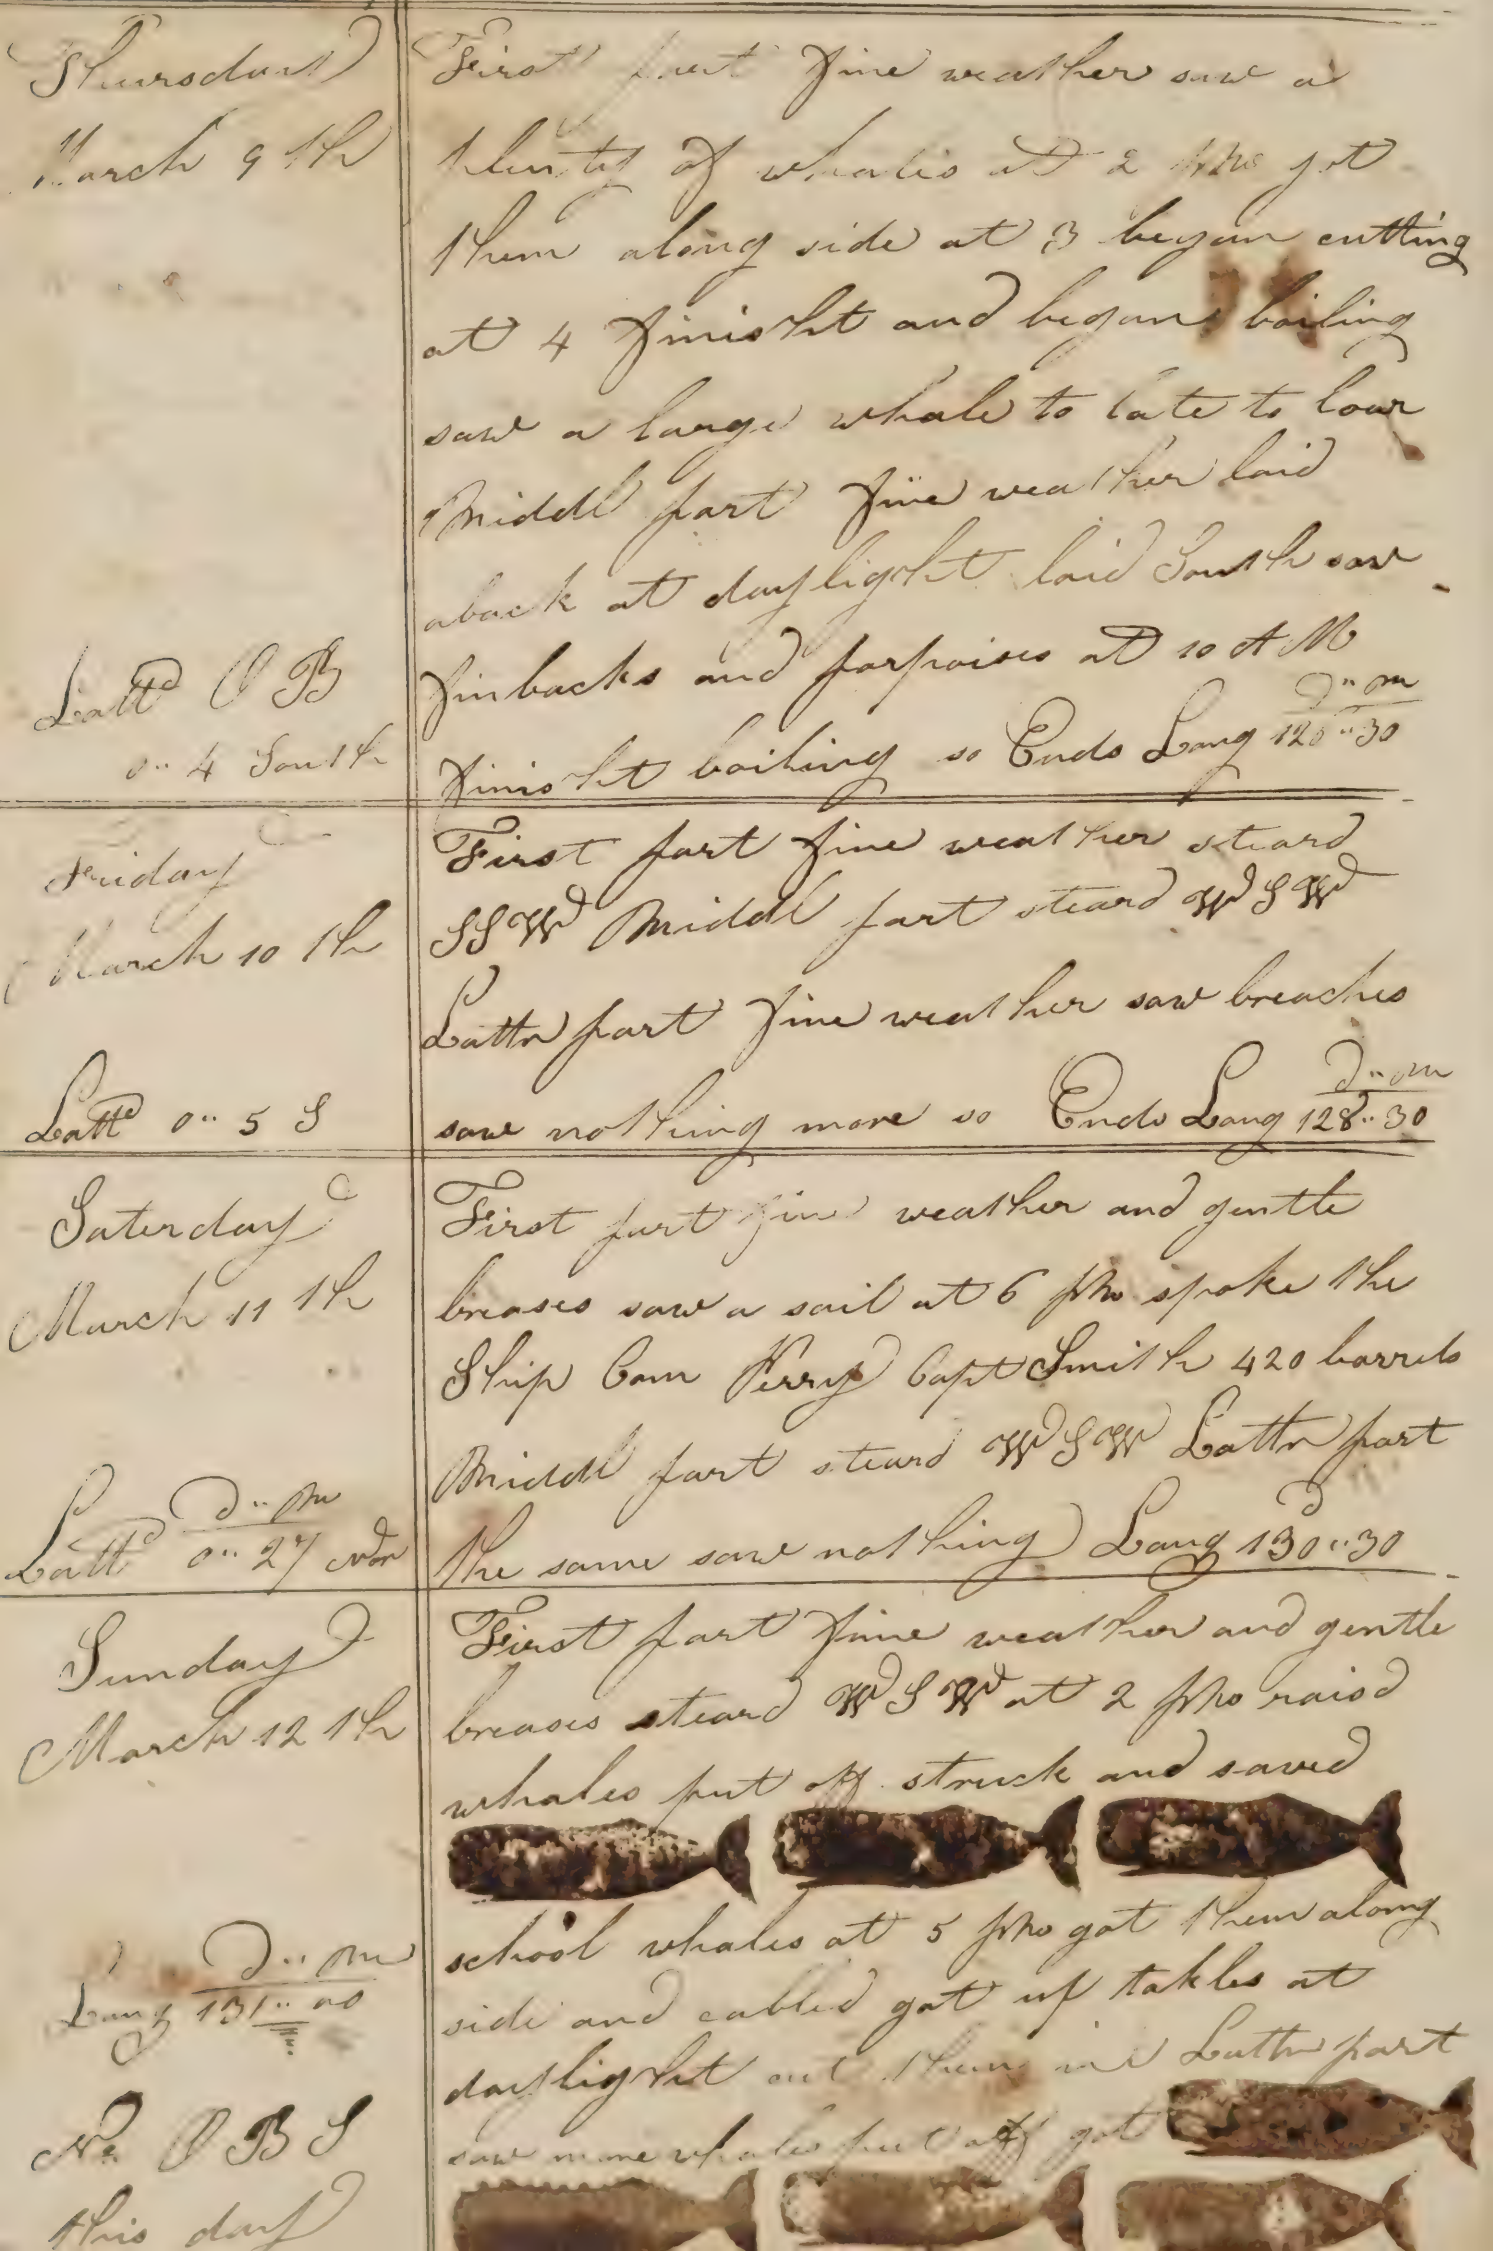 Thursday
March 9 th
Lattd O B
0 " 4 South
First part fine weather saw a
plenty of whales at 2 PM got
them along side at 3 began cutting
at 4 finisht and began boiling
saw a large whale to late to lour
Middl part fine weather laid
aback at daylight laid South saw
finbacks and porpoises at 10 A M
finisht boiling so Ends Long D " m
30
Friday
March 10 th
Lattd 0 " 5 S
First part fine weather steard
SSW Middl part steard WSW
Lattr part fine weather saw breaches
saw nothing more so Ends Long D " m
128 " 30
Saterday
March 11 th
Lattd D " m
0 " 27 Nor
First part fine weather and gentle
breases saw a sail at 6 PM spoke the
Ship Com Perry Capt Smith 420 barrels
Middl part steard WSW Lattr part
the same saw nothing Long 130 " 30
Sunday
March 12 th
Long D " m
131 " 00
No O B S
this day
First part fine weather and gentle
breases steard WSW at 2 PM raisd
whales put off struck and saved
school whales at 5 PM got them along
side and cabled got up takles at
daylight cut them in Lattr part
saw more whales put off got